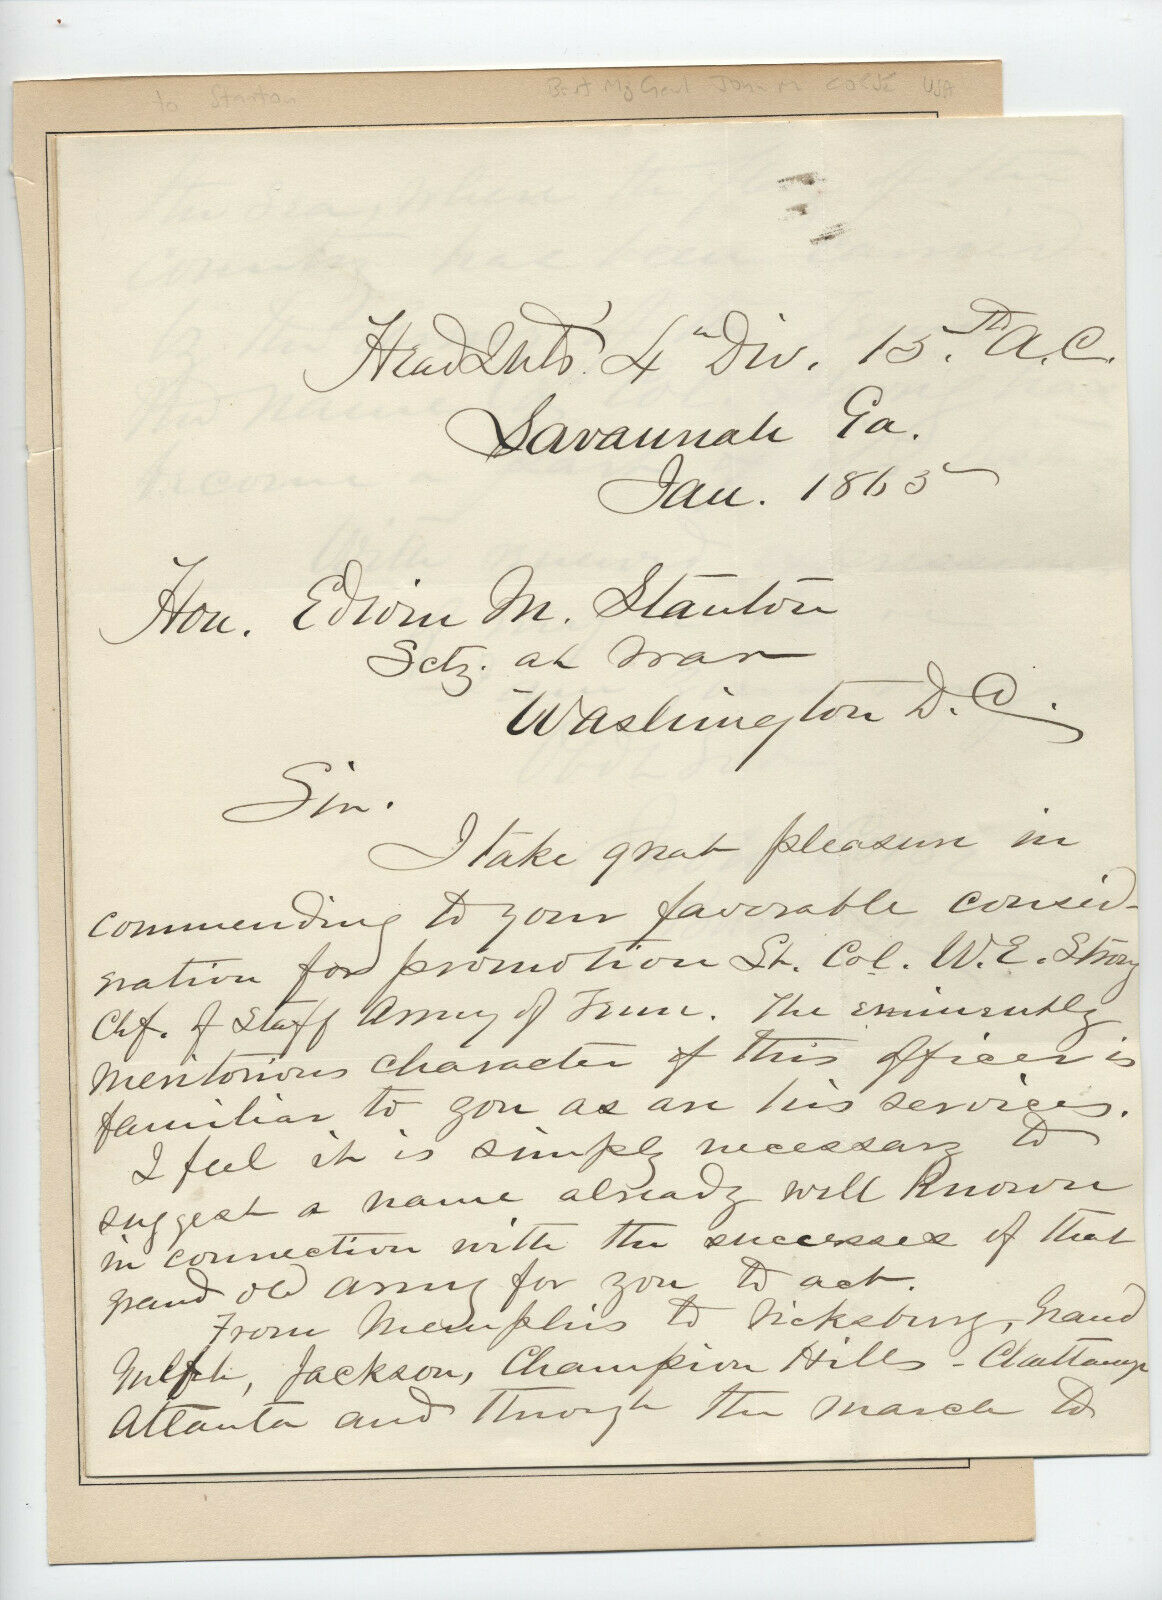 to Stanton
Bvt Mj Genl John M Corse USA
Head Qrts' 4" Div. 15.th A.C.
Savannah Ga.
Jan. 1865
Hon. Edwin M. Stanton
Scty. at War
Washington D.C.
Sir.
I take great pleasure in
commending to your favorable consid-
eration for promotion Lt. Col. W.E. Strong
Chf. of Staff Army of Tenn. The eminently
meritorious character of this officer is
familiar to you as are his services.
I feel it is simply necessary to
suggest a name already well known
in connection with the successes of that
grand old army for you to act.
From Memphis to Vicksburg, Grand
Gulf, Jackson, Champion Hills - Chattanoga
Atlanta and through the march to